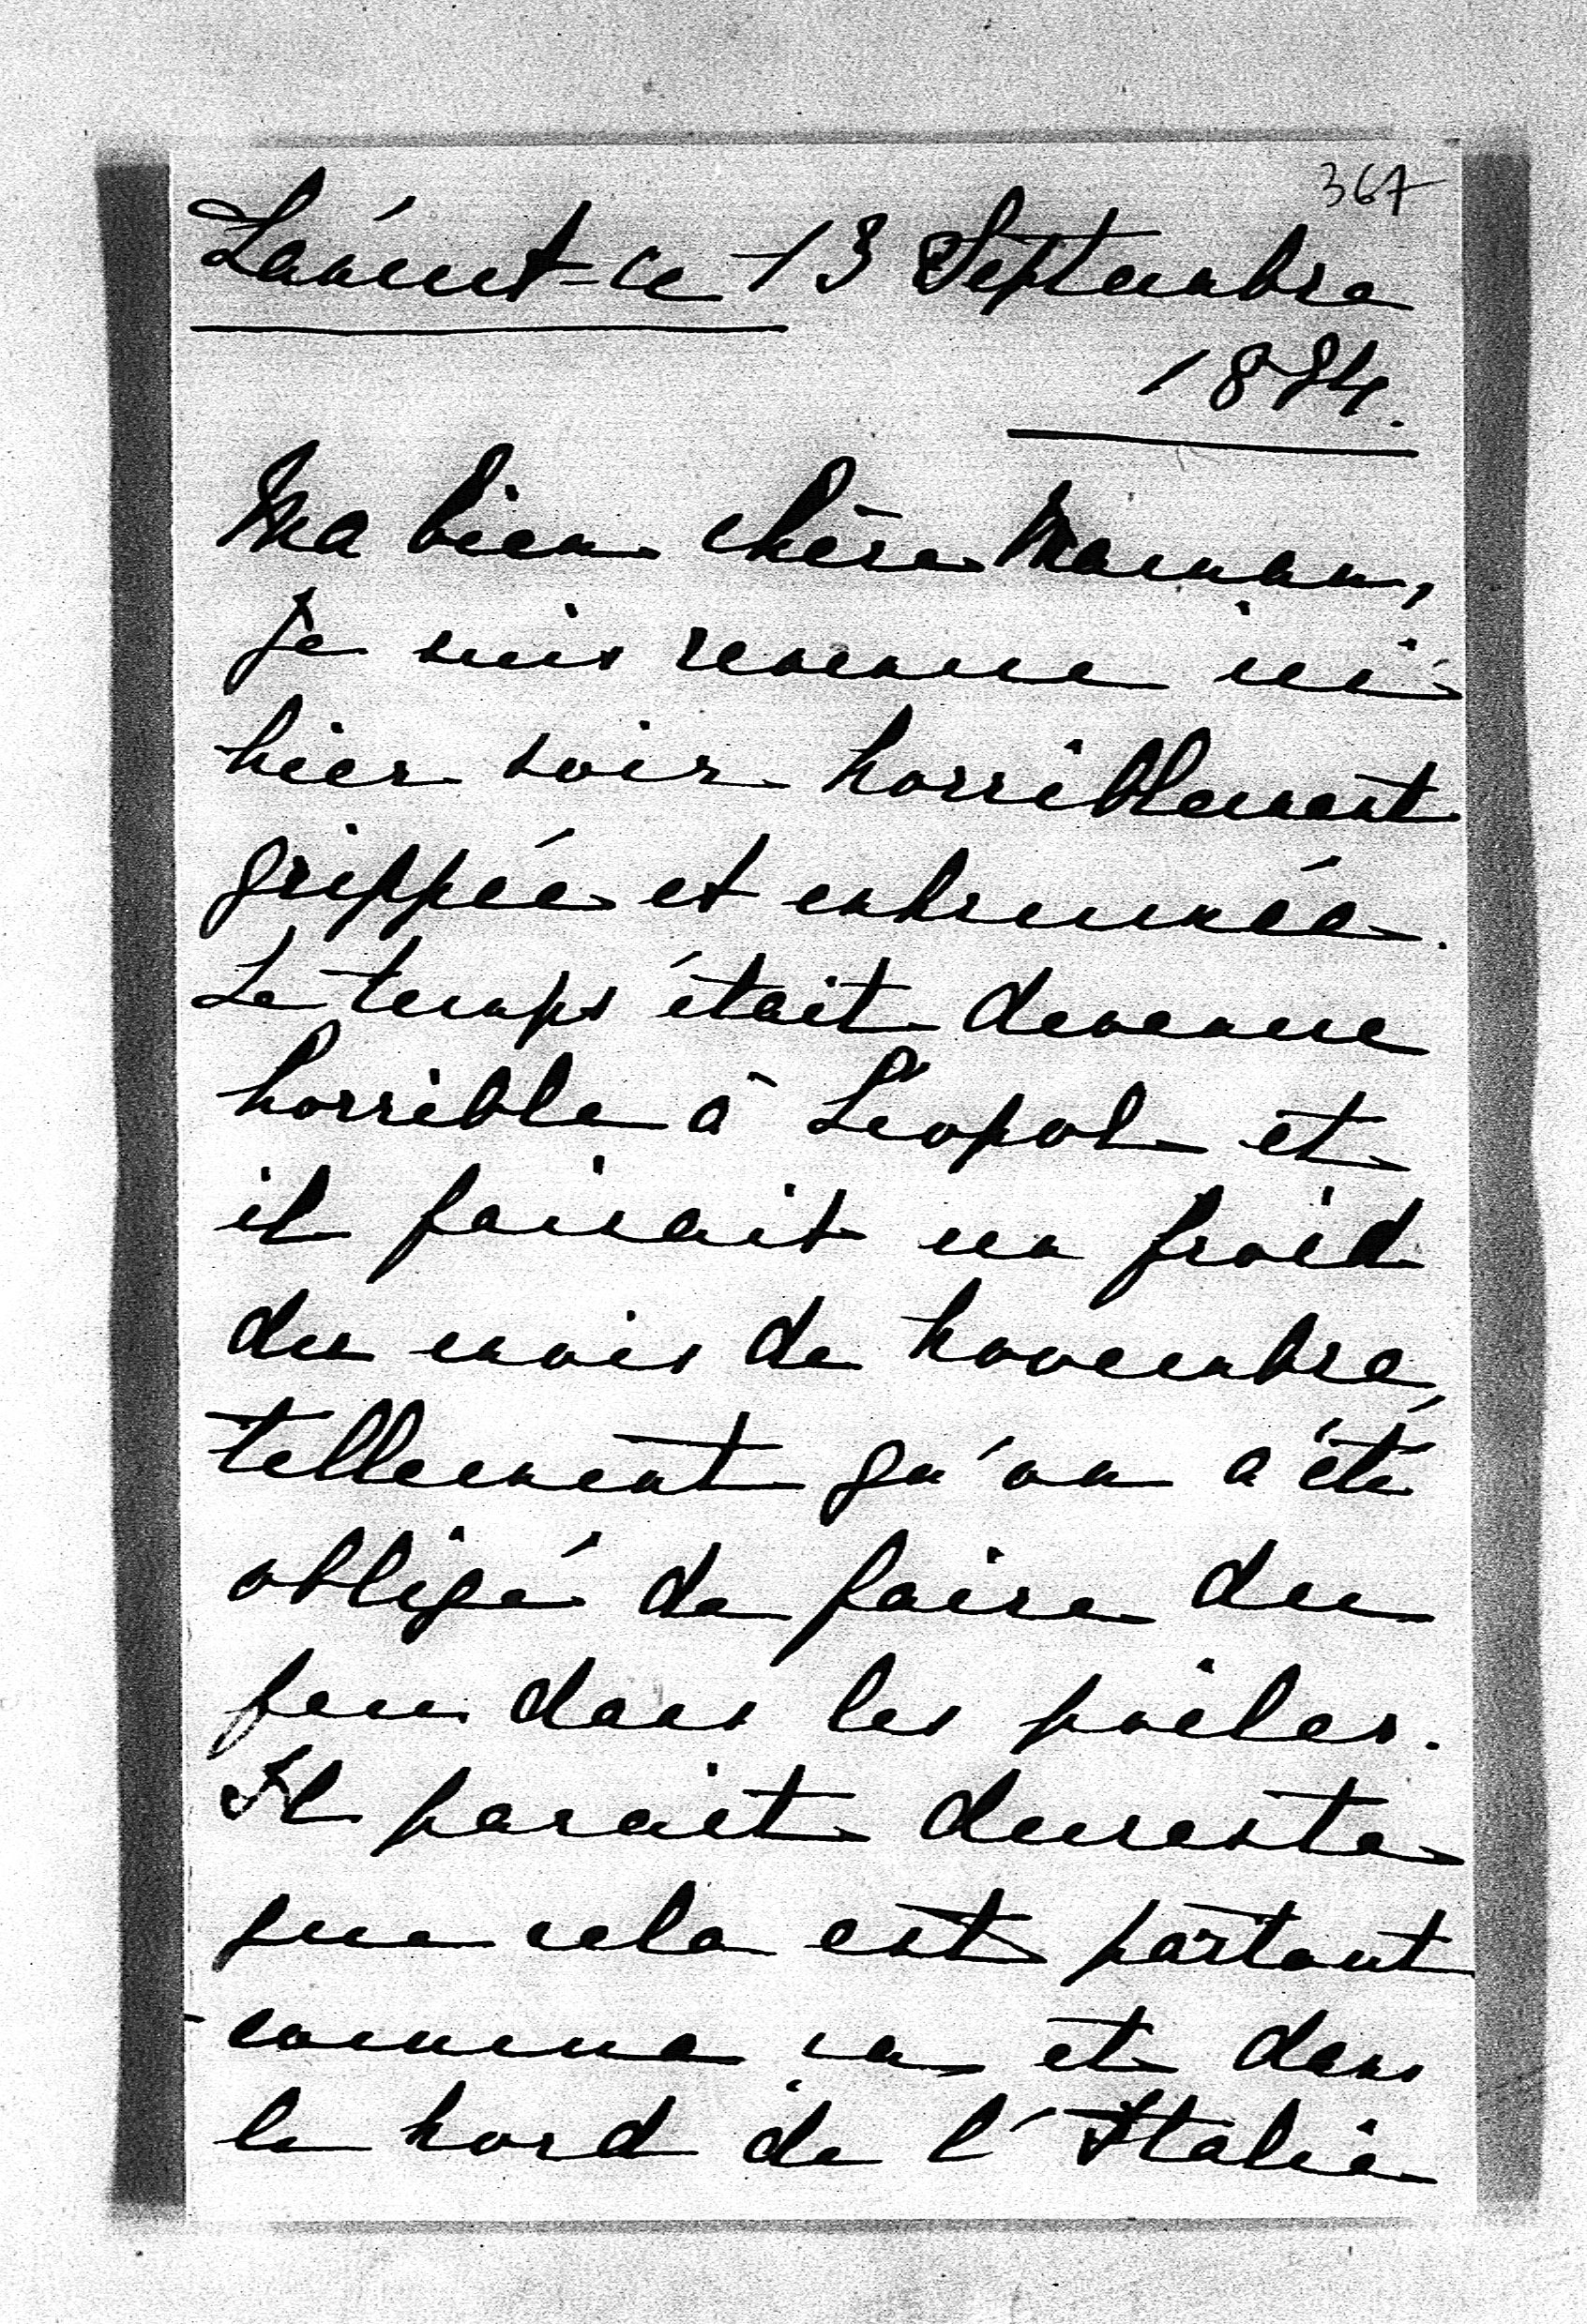 367
Łańcut-ce 13 Septembre
1884.
Ma bien chère Maman,
Je suis revenue ici
hier soir horriblement
grippée et enhrumée.
Le temps était devenue
horrible à Léopol et
il faisait un froid
du mois de Novembre,
tellement qu'on a été
obligé de faire du
feu dans les poëles.
Il parait dureste
que cela est partout
comme ça et dans
le Nord de l'Italie